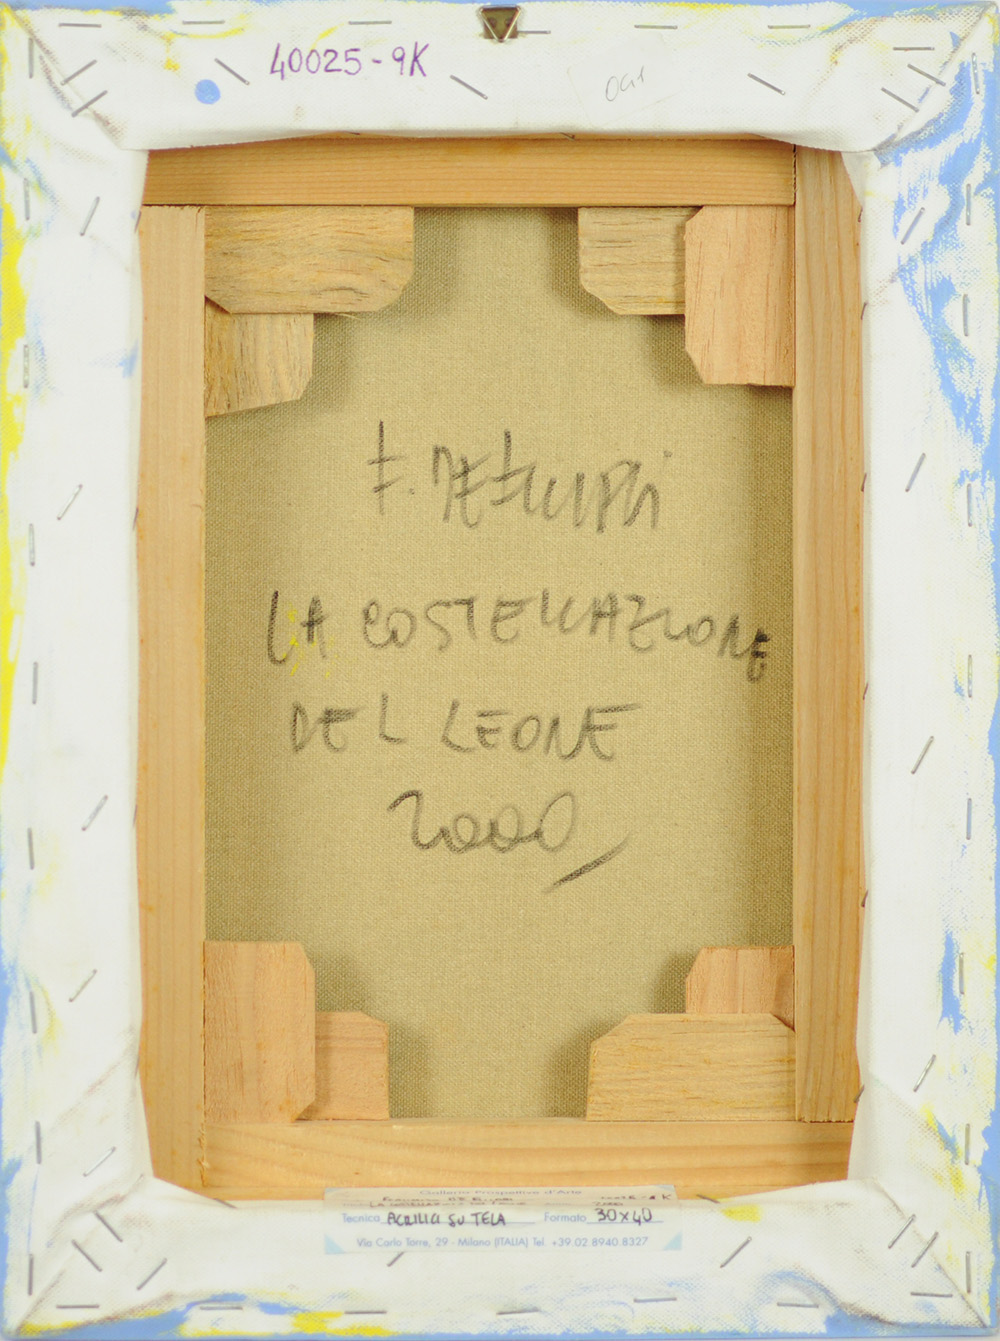 40025-9K
F. DE FILIPPI
LA COSTELLAZIONE
DEL LEONE
2000
Galleria Prospettive d'Arte
Tecnica ACRILICI SU TELA Formato 30x40
Via Carlo Torre, 29 - Milano (ITALIA) Tel. +39.02 8940.8327